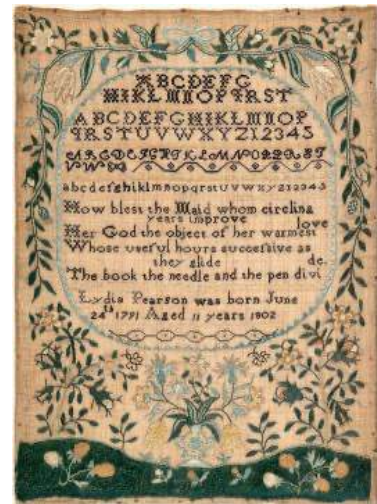 ABCDEFG
HIKLMNOPQRST
ABCDEFGHIKLMNOP
QRSTUVWXYZ12345
ABCDEFGHIKLMNOPQRST
VW
abcdefghiklmnopqrstuvwxyz12345
How blest the Maid whom circling
years improve
love
Her God the object of her warmest
Whose useful hours successive as
they glide
de.
The book the needle and the pen divi
Lydia Pearson was born June
24th 1791 Aged 11 years 1802